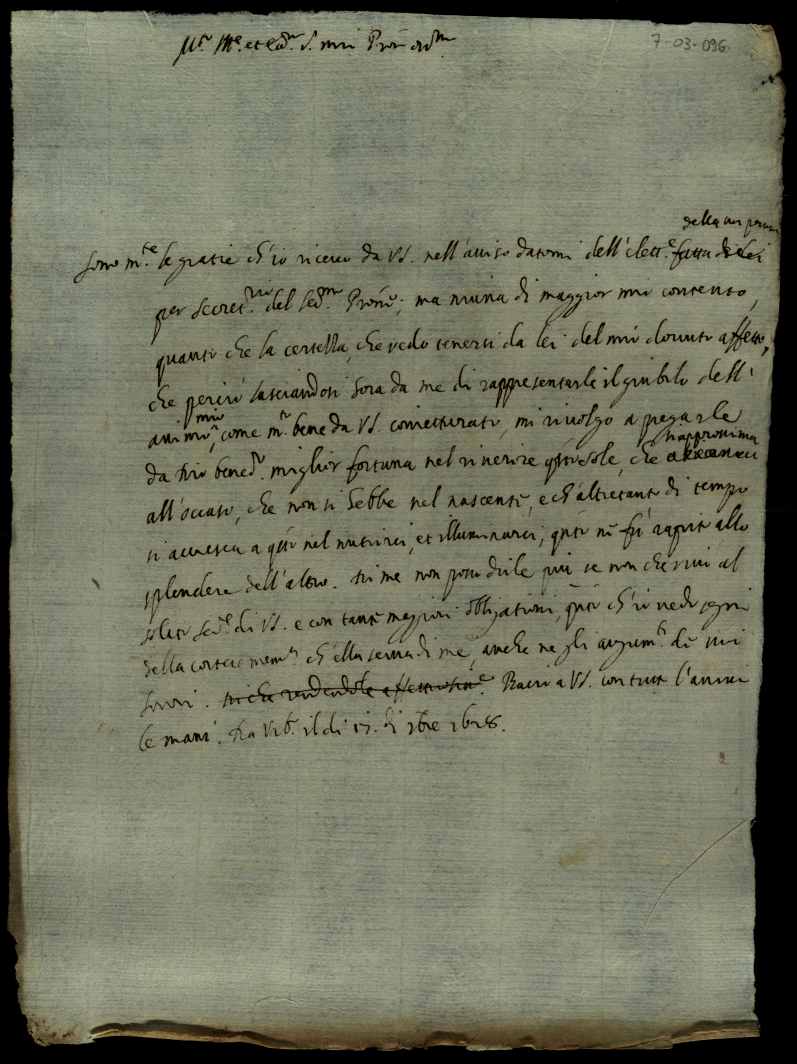 7-03-096
Mr. Ill.e et Ecc.mo S. mio P.rone oss.mo
della sua persona
Sono m.te le gratie ch'io ricevo da VS. nell'avviso datomi dell'elett.e fatta di lei
per secret.rio del Ser.mo P.rone; ma niuna di maggior mio contento,
quanto che la certezza, che vedo tenersi da lei del mio dovuto affetto,
che perciò lasciandosi hora da me di rappresentarle il giubilo dell'
animo mio, come m.to bene da VS. conietturato, mi rivolgo a pregarle
s'approssima
da Dio bened.o miglior fortuna nel riverire q.sto sole, che
all'occaso, che non si hebbe nel nascente, e ch'altretanto di tempo
si accresca a q.sto nel nutrirci, et illuminarci, q.nto ne fu rapito allo
splendore dell'altro. Di me non posso dirle più se non che vivo al
solito ser.re di VS. e con tante maggiori obligationi, q.nto ch'io vedo ogni
della cortese mem.a ch'ella serva di me, anche negli augum.ti de suoi
honori. Di che rendendole affettuosiss.e Bacio a VS. con tutto l'animo
le mani. Da Urb.o il di 17. di 7bre 1628.